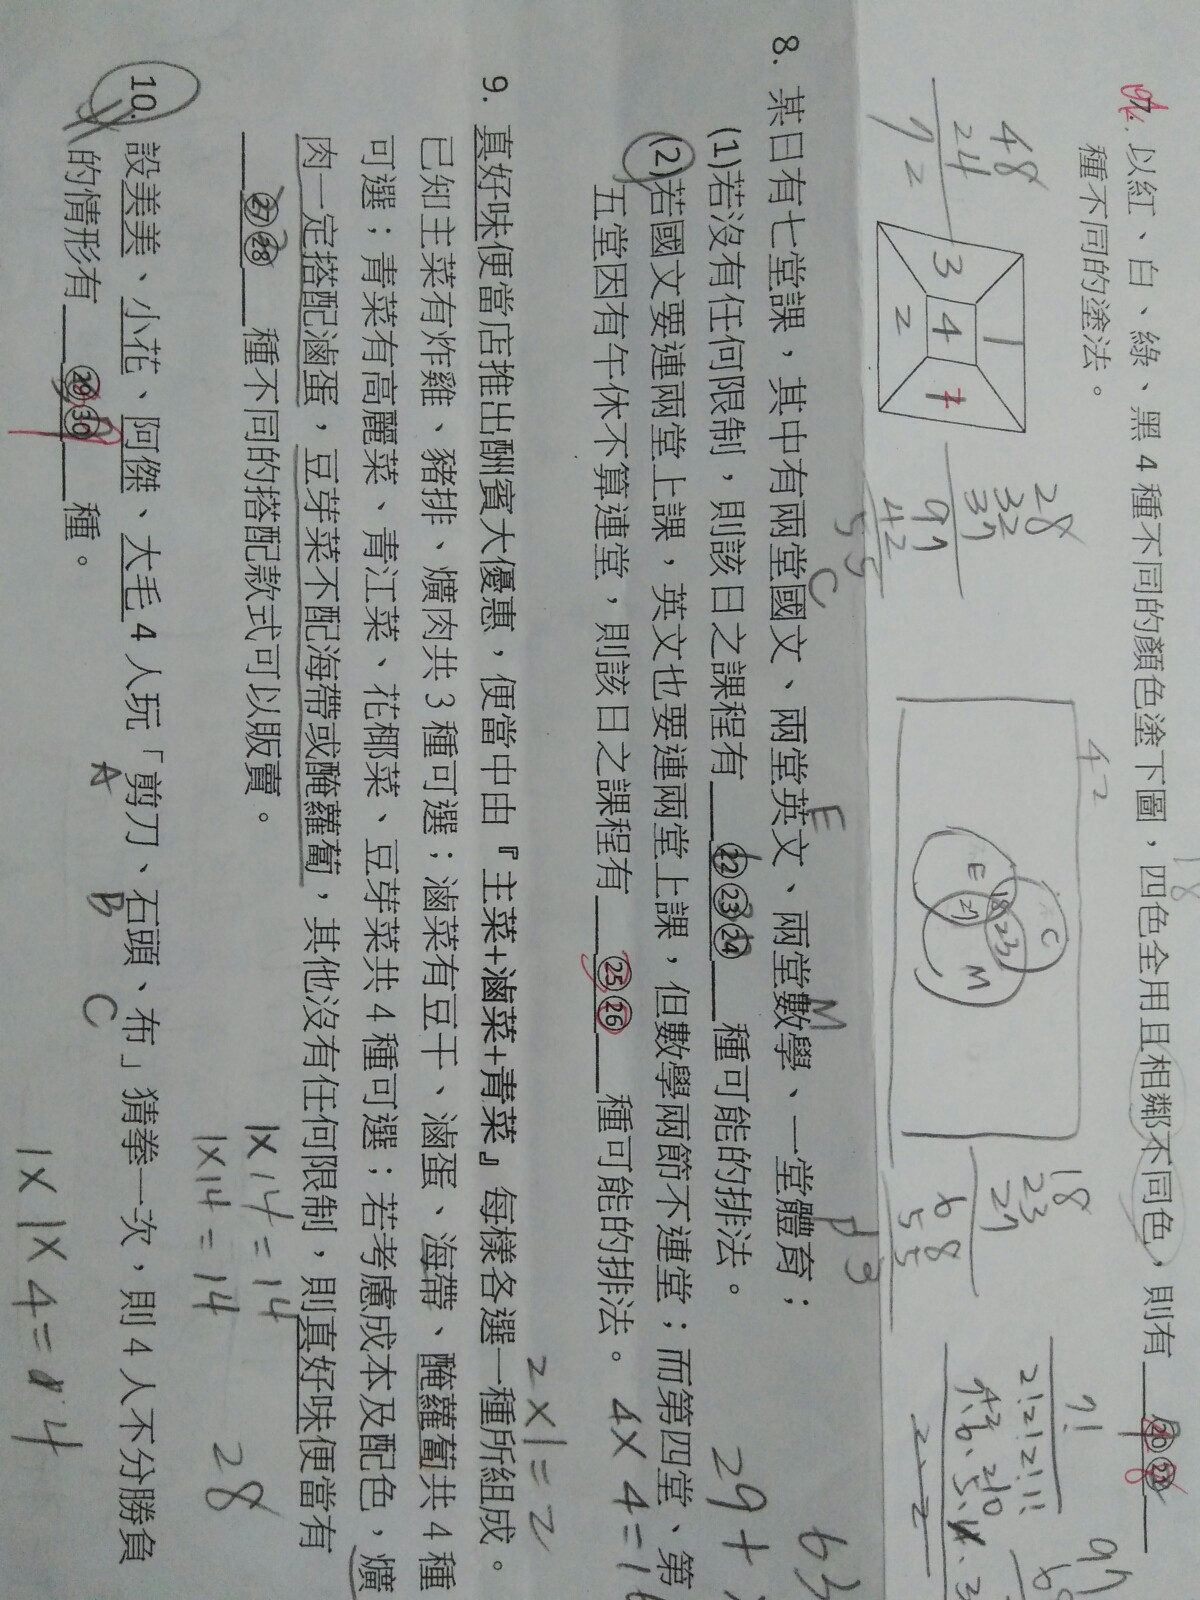 7. 以紅、白、綠、黑 4 種不同的顏色塗下圖，四色全用且相鄰不同色，則有 ⑳㉑
種不同的塗法。
48
24
72
3
1
4
2
28
32
37
97
42
55
42
E
C
M
18
23
27
18
23
27
68
55
7!
2!2!2!1!
8. 某日有七堂課，其中有兩堂國文、兩堂英文、兩堂數學、一堂體育；
C
E
M
P
(1)若沒有任何限制，則該日之課程有 ㉒㉓㉔ 種可能的排法。
(2)若國文要連兩堂上課，英文也要連兩堂上課，但數學兩節不連堂；而第四堂、第
五堂因有午休不算連堂，則該日之課程有 ㉕㉖ 種可能的排法。
2×1=2
9. 真好味便當店推出酬賓大優惠，便當中由『主菜+滷菜+青菜』每樣各選一種所組成。
已知主菜有炸雞、豬排、爌肉共 3 種可選；滷菜有豆干、滷蛋、海帶、醃蘿蔔共 4 種
可選；青菜有高麗菜、青江菜、花椰菜、豆芽菜共 4 種可選；若考慮成本及配色，爌
肉一定搭配滷蛋，豆芽菜不配海帶或醃蘿蔔，其他沒有任何限制，則真好味便當有
㉗㉘ 種不同的搭配款式可以販賣。
1×14=14
1×14=14
28
10. 設美美、小花、阿傑、大毛 4 人玩「剪刀、石頭、布」猜拳一次，則 4 人不分勝負
A
B
C
的情形有 ㉙㉚ 種。
1×1×4=4